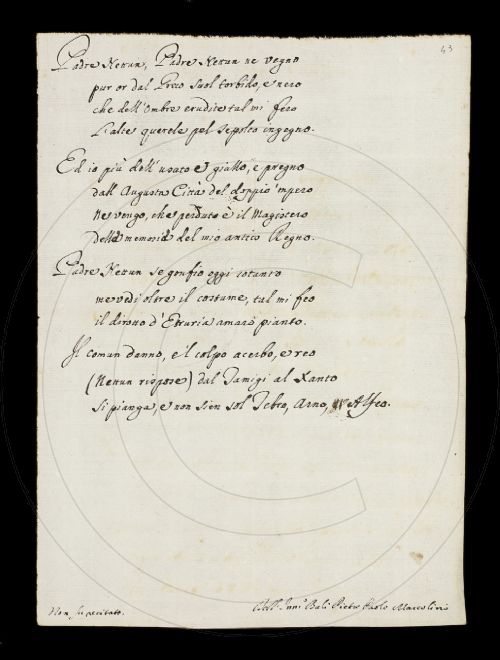 43
Padre Nettun, Padre Nettun ne vegno
pur or dal Greco suol torbido, e nero
che dell'Ombre erudite tal mi fero
L'alte querele pel sepolto ingegno.
Ed io più dell'usato e giallo, e pregno
dall'Augusta Città del doppio impero
Ne vengo, che perduto è il Magistero
della memoria del mio antico Regno.
Padre Nettun se gonfio oggi cotanto
me vedi oltre il costume, tal mi feo
il dirotto d'Etruria amaro pianto.
Il comun danno, e'l colpo acerbo, e reo
(Nettun rispose) dal Tamigi al Xanto
Si pianga, e non sien sol Tebro, Arno, Alfeo.
Non fu recitato.
Bali Pietro Paolo Marcolini